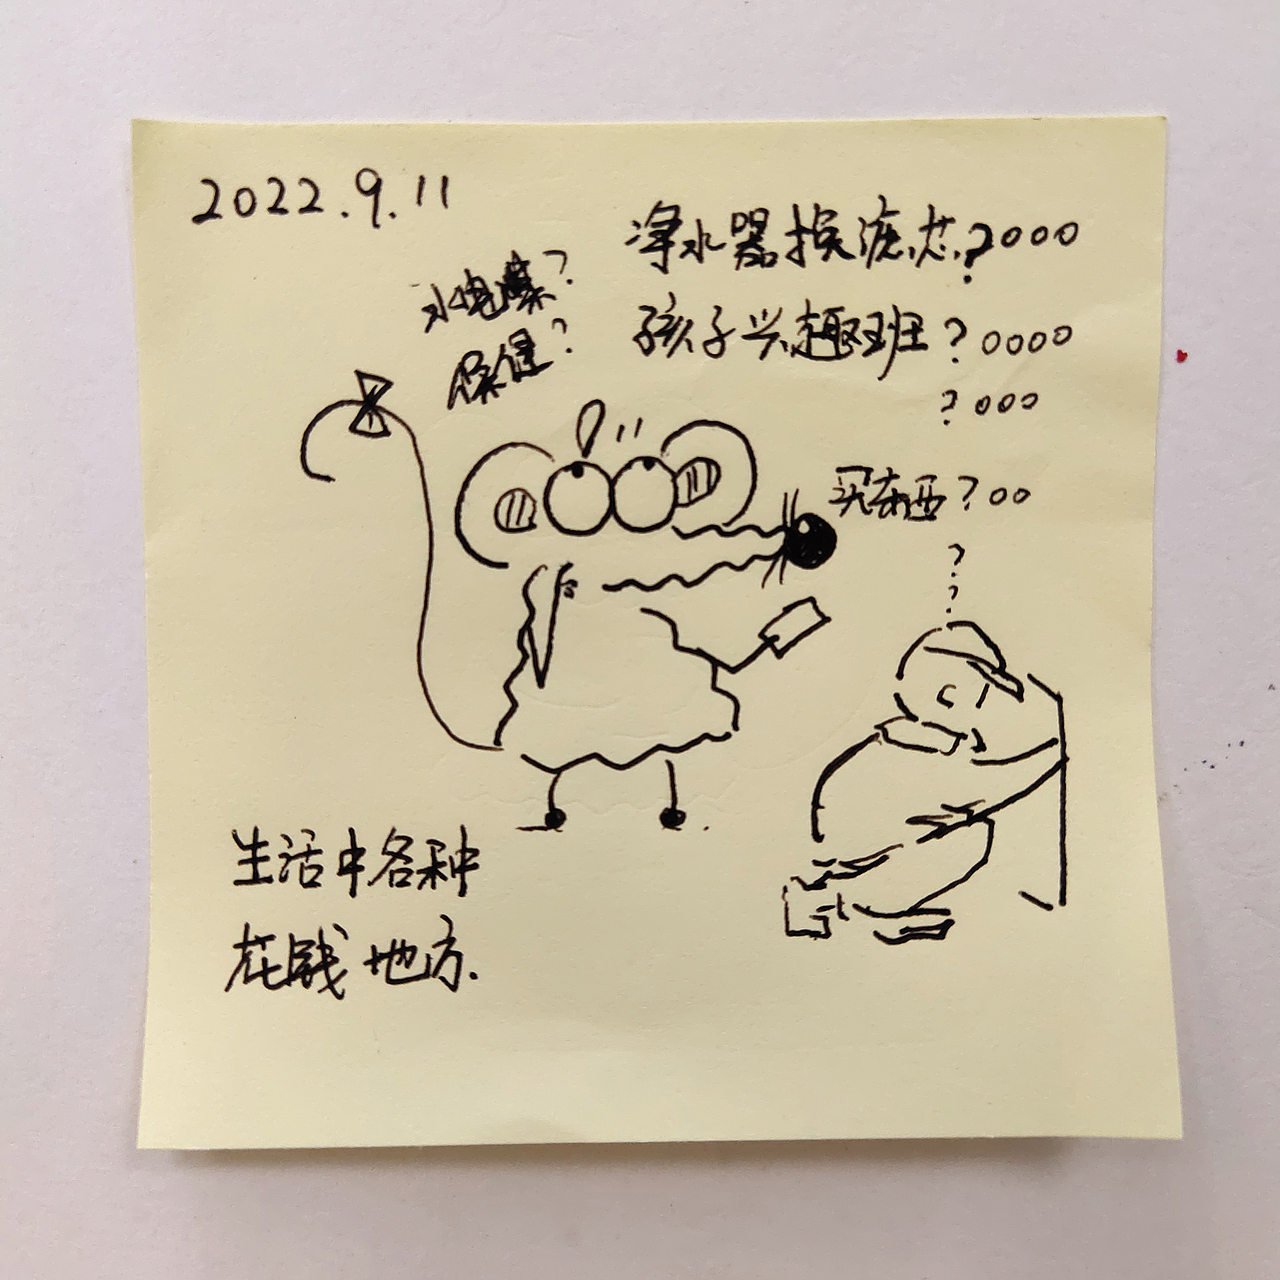 2022.9.11
净水器换滤芯?2000
水电煤?
保健?
孩子兴趣班?0000
?000
买东西?00
?
?
生活中各种
花钱地方.